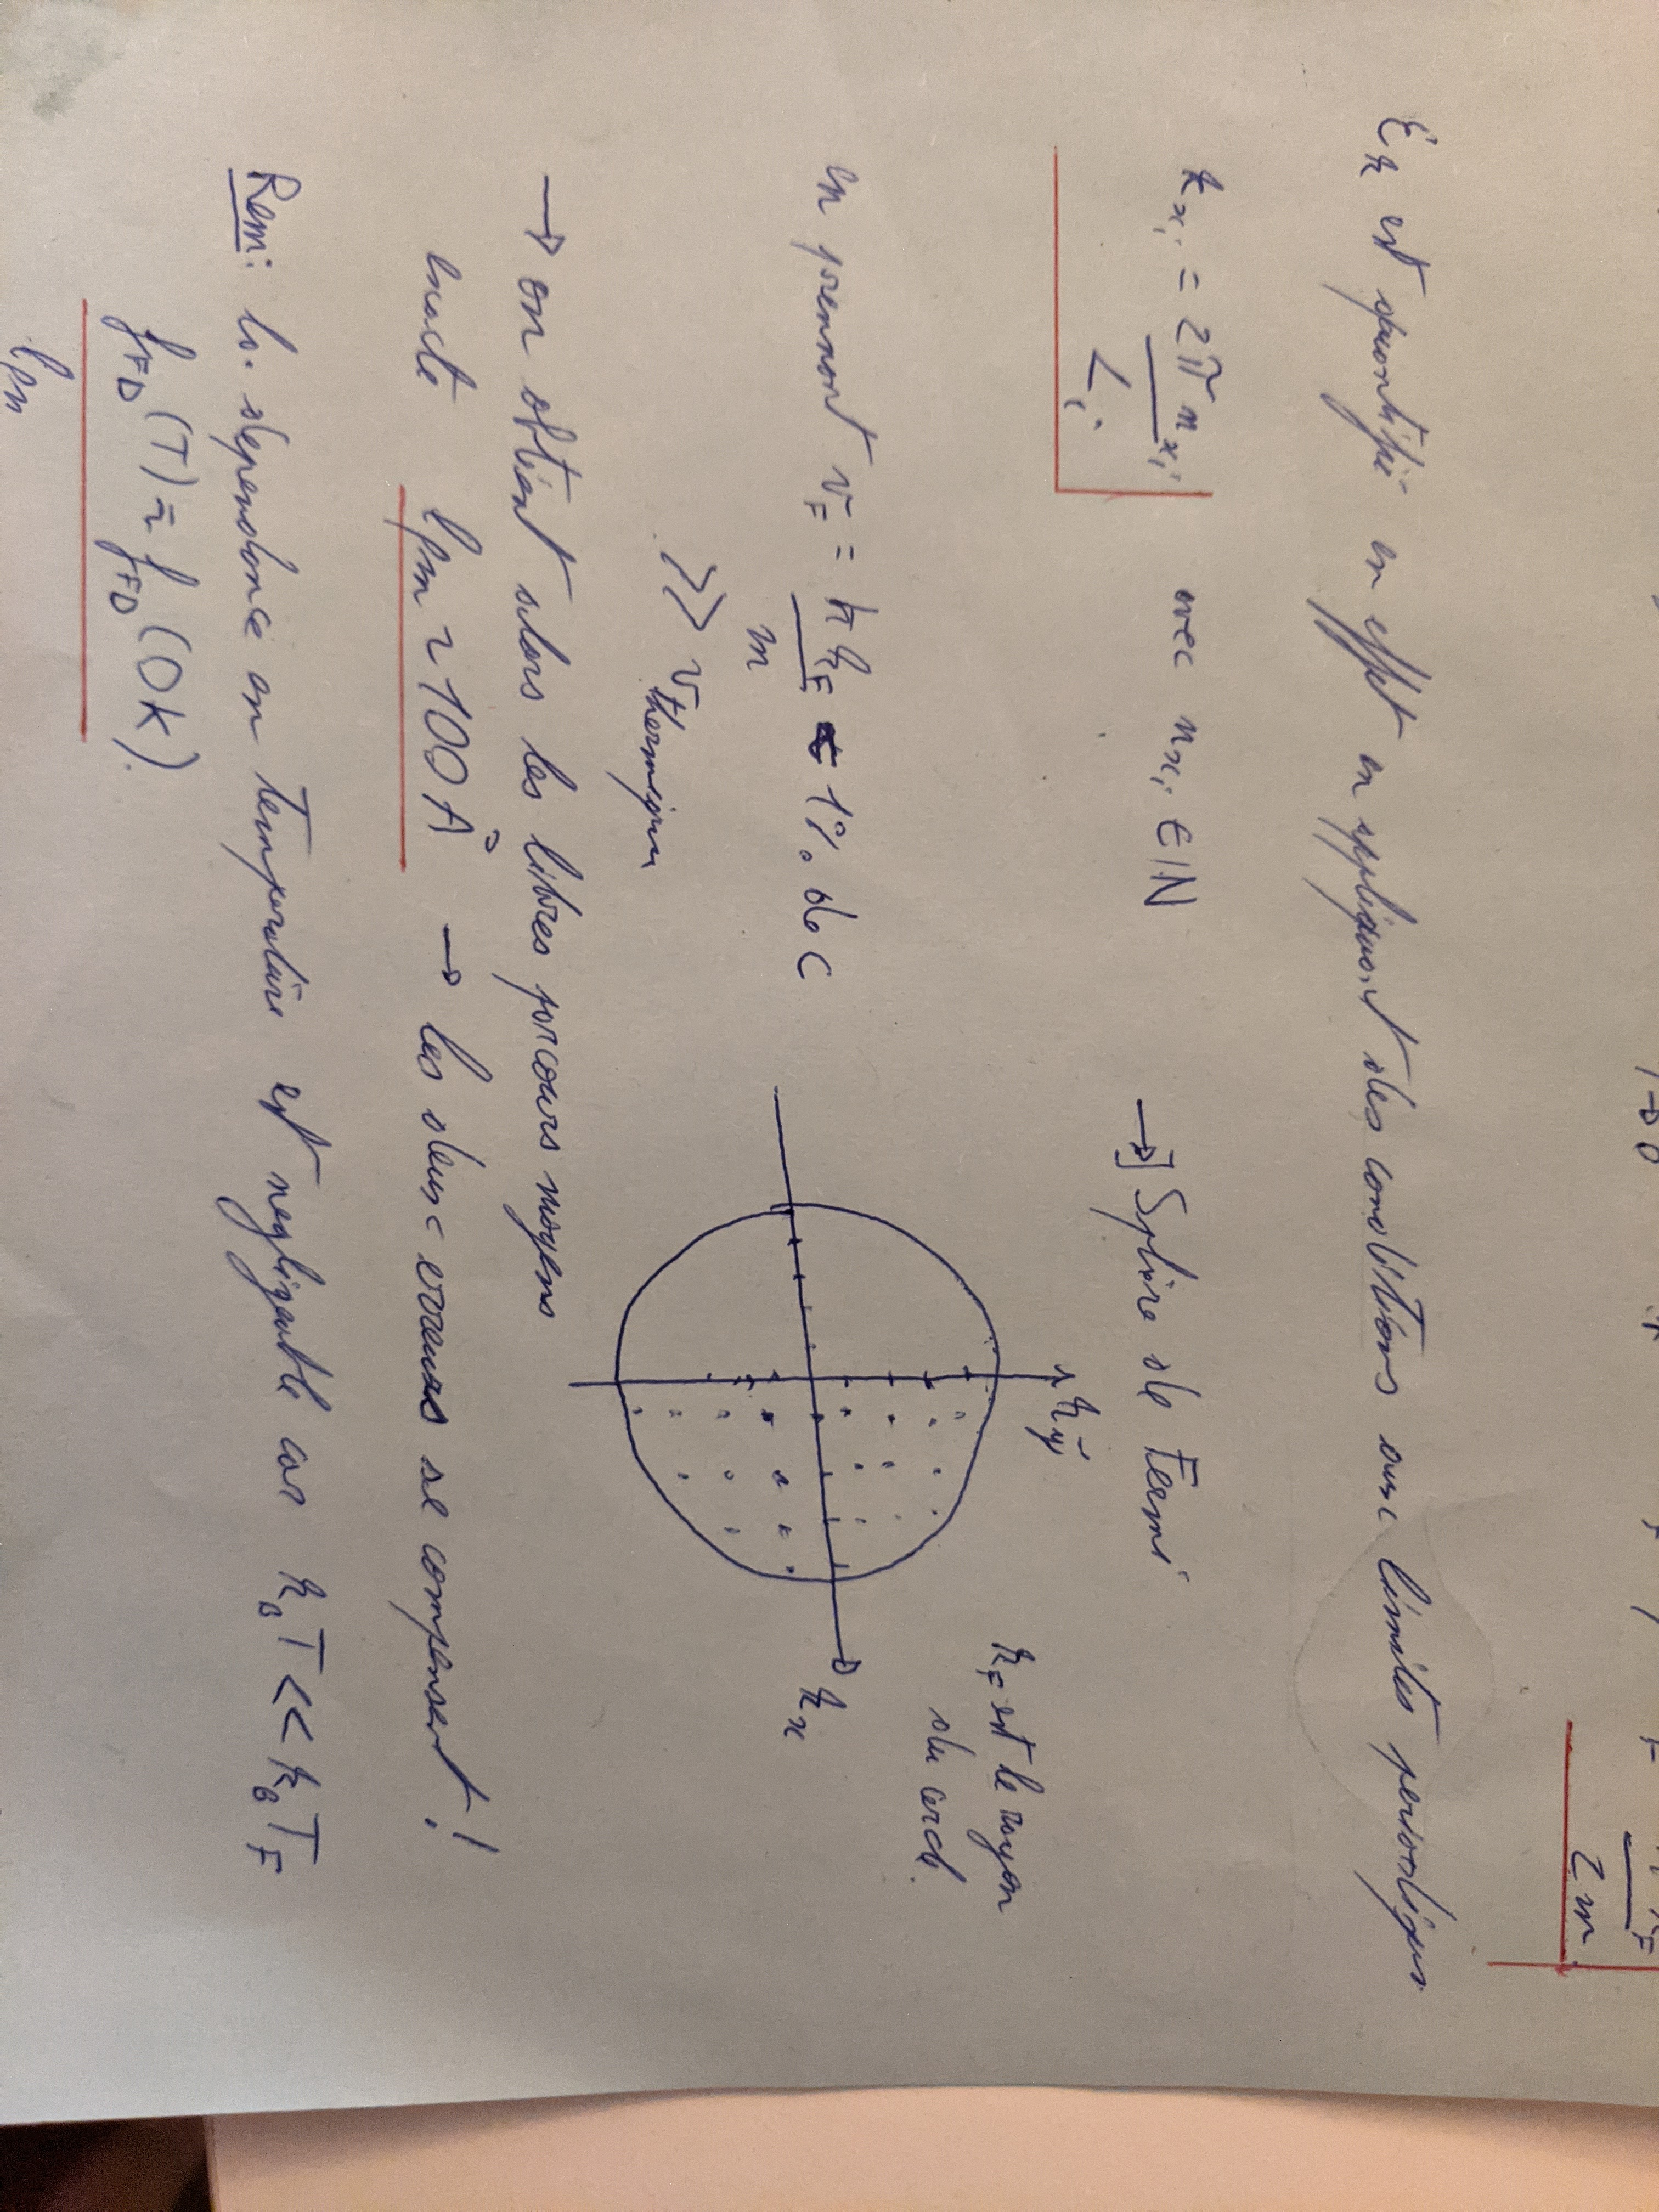 2m
E_k est quantifié en effet en appliquant des conditions aux limites periodiques
k_{x_i} = 2π n_{x_i} / L_i avec n_{x_i} ∈ ℕ → ∃ Sphère de Fermi
k_F est le rayon
du cercle.
k_y
k_x
en prennant v_F = ħ k_F / m ~ 1% de c
>> v_thermique
→ on obtient alors les libres parcours moyens
exacte lpm ~ 100 Å → les deux erreurs se compensent !
Rem: la dependance en temperature est negligeable car k_B T << k_B T_F
f_FD (T) ≃ f_FD (0K).
lpm